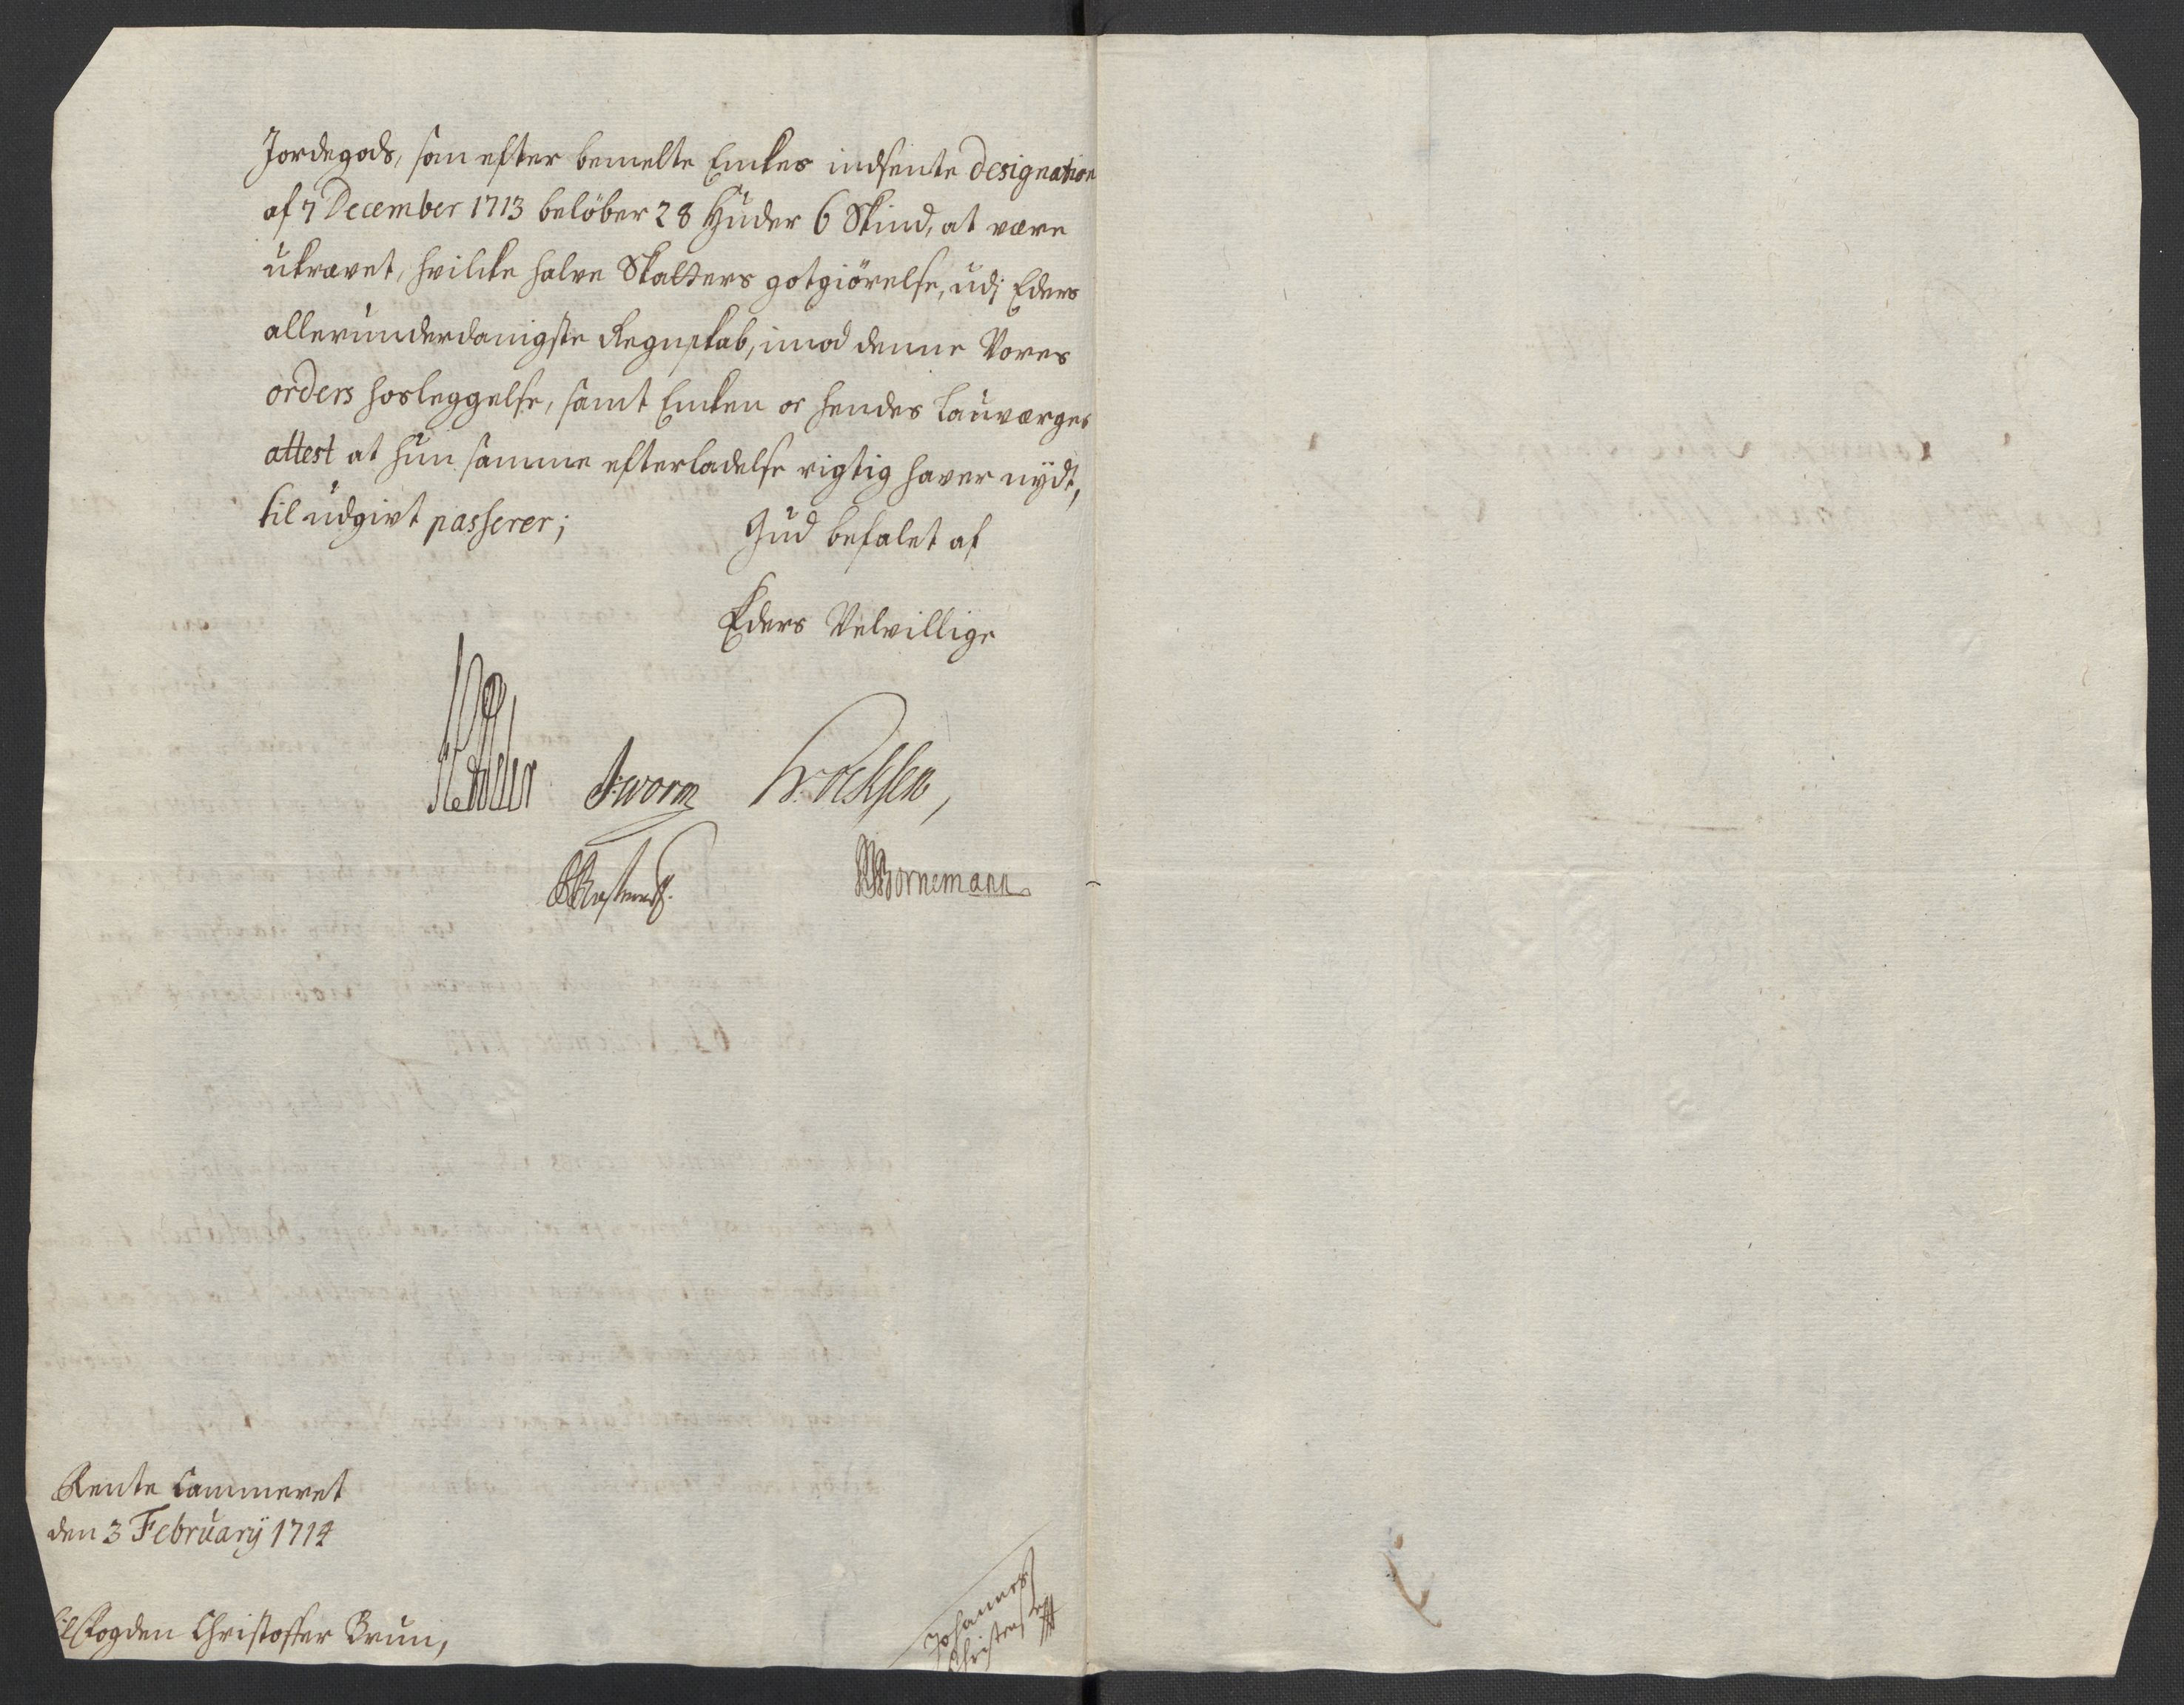 Jordegods, som efter bemelte Enkes indsente designation
af 7 December 1713 beløber 28 Huder 6 Skind, at være
ukrævet, hvilke halve Skatters gotgiörelse, udj Eders
allerunderdanigste Regnskab, imod denne Vores
orders hosleggelse, samt Enken oc hendes Lauværges
attest at hun samme efterladelse rigtig haver nÿdt,
til udgivt passerer;
Gud befalet af
Eders Velvillige
J: Worm
Bornemann
Rente Cammeret
den 3 Februarij 1714
til Fogden Christoffer Brun,
Johannes
Christens